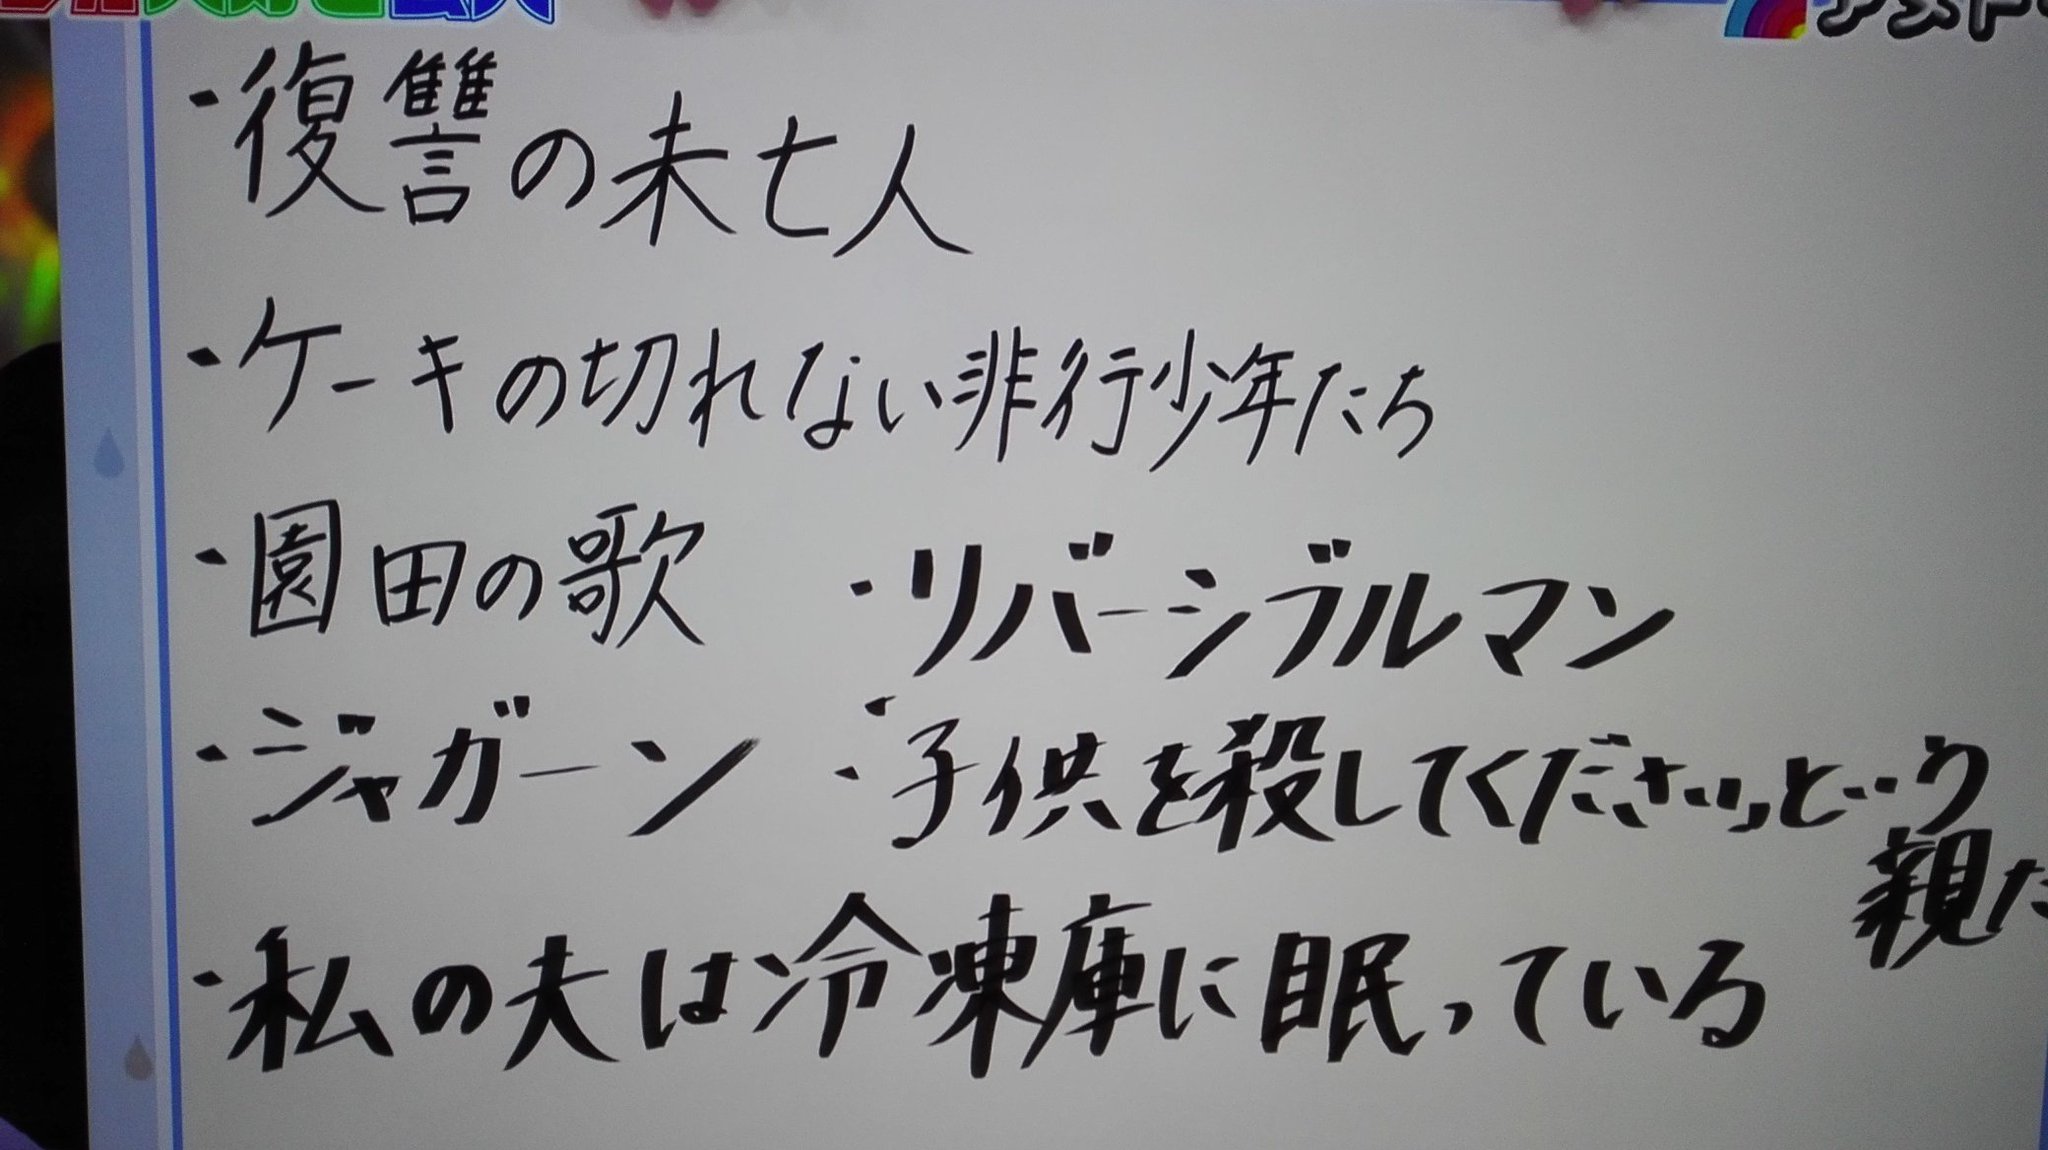 アメトー
・復讐の未亡人
・ケーキの切れない非行少年たち
・園田の歌 ・リバーシブルマン
・ジャガーン ・子供を殺してくださいという
親た
・私の夫は冷凍庫に眠っている